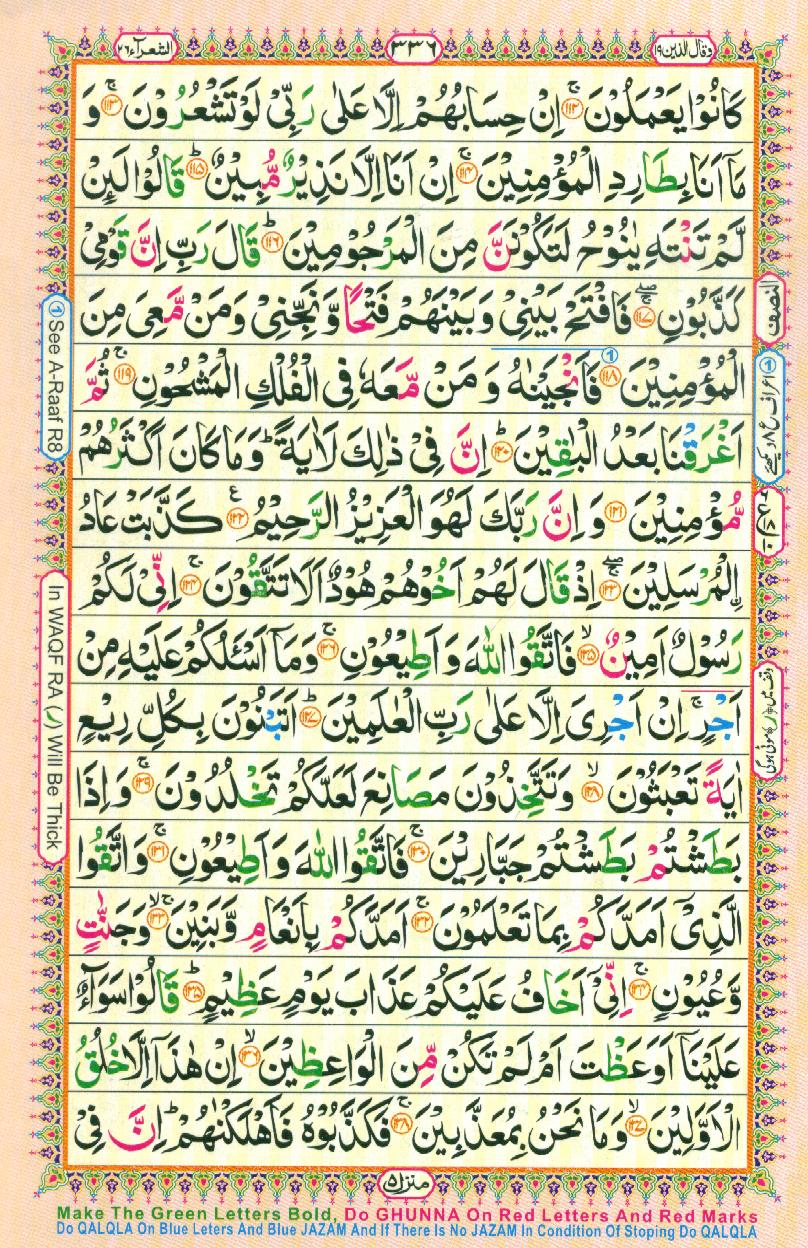 وقال الذين ١٩
٣٣٦
الشعرآء ٢٦
كَانُوۡا يَعۡمَلُوۡنَ ۚ‏﴿۱۱۲﴾ اِنۡ حِسَابُهُمۡ اِلَّا عَلٰى رَبِّىۡ لَوۡ تَشۡعُرُوۡنَ ۚ‏﴿۱۱۳﴾ وَ
مَاۤ اَنَا بِطَارِدِ الۡمُؤۡمِنِيۡنَ ۚ‏﴿۱۱۴﴾ اِنۡ اَنَا اِلَّا نَذِيۡرٌ مُّبِيۡنٌ ؕ‏﴿۱۱۵﴾ قَالُوۡا لَٮِٕنۡ
لَّمۡ تَنۡتَهِ يٰنُوۡحُ لَتَكُوۡنَنَّ مِنَ الۡمَرۡجُوۡمِيۡنَ ؕ‏﴿۱۱۶﴾ قَالَ رَبِّ اِنَّ قَوۡمِىۡ
كَذَّبُوۡنِ ‌ۖ‌ۚ‏﴿۱۱۷﴾ فَافۡتَحۡ بَيۡنِىۡ وَبَيۡنَهُمۡ فَتۡحًا وَّنَجِّنِىۡ وَمَنۡ مَّعِىَ مِنَ
الۡمُؤۡمِنِيۡنَ ‏﴿۱۱۸﴾ فَاَنۡجَيۡنٰهُ وَمَنۡ مَّعَهٗ فِى الۡفُلۡكِ الۡمَشۡحُوۡنِ‌ۚ‏﴿۱۱۹﴾ ثُمَّ
اَغۡرَقۡنَا بَعۡدُ الۡبٰقِيۡنَؕ‏﴿۱۲۰﴾ اِنَّ فِىۡ ذٰلِكَ لَاٰيَةً‌ ؕ وَمَا كَانَ اَكۡثَرُهُمۡ
مُّؤۡمِنِيۡنَ ‏﴿۱۲۱﴾ وَاِنَّ رَبَّكَ لَهُوَ الۡعَزِيۡزُ الرَّحِيۡمُ‏﴿۱۲۲﴾ ع كَذَّبَتۡ عَادُ
۟الۡمُرۡسَلِيۡنَ ‌ۖ‌ۚ‏﴿۱۲۳﴾ اِذۡ قَالَ لَهُمۡ اَخُوۡهُمۡ هُوۡدٌ اَلَا تَتَّقُوۡنَ‌ۚ‏﴿۱۲۴﴾ اِنِّىۡ لَـكُمۡ
رَسُوۡلٌ اَمِيۡنٌۙ‏﴿۱۲۵﴾ فَاتَّقُوا اللّٰهَ وَاَطِيۡعُوۡنِ‌ۚ‏﴿۱۲۶﴾ وَمَاۤ اَسۡئَلُكُمۡ عَلَيۡهِ مِنۡ
اَجۡرٍ‌ۚ اِنۡ اَجۡرِىَ اِلَّا عَلٰى رَبِّ الۡعٰلَمِيۡنَؕ‏﴿۱۲۷﴾ اَتَبۡنُوۡنَ بِكُلِّ رِيۡعٍ
اٰيَةً تَعۡبَثُوۡنَۙ‏﴿۱۲۸﴾ وَتَتَّخِذُوۡنَ مَصَانِعَ لَعَلَّكُمۡ تَخۡلُدُوۡنَ‌ۚ‏﴿۱۲۹﴾ وَاِذَا
بَطَشۡتُمۡ بَطَشۡتُمۡ جَبَّارِيۡنَ‌ۚ‏﴿۱۳۰﴾ فَاتَّقُوا اللّٰهَ وَاَطِيۡعُوۡنِ‌ۚ‏﴿۱۳۱﴾ وَاتَّقُوۡا
الَّذِىۡۤ اَمَدَّكُمۡ بِمَا تَعۡلَمُوۡنَ‌ۚ‏﴿۱۳۲﴾ اَمَدَّكُمۡ بِاَنۡعَامٍ وَّبَنِيۡنَ ‌ۚۙ‏﴿۱۳۳﴾ وَجَنّٰتٍ
وَّعُيُوۡنٍ‌ۚ‏﴿۱۳۴﴾ اِنِّىۡۤ اَخَافُ عَلَيۡكُمۡ عَذَابَ يَوۡمٍ عَظِيۡمٍؕ‏﴿۱۳۵﴾ قَالُوۡا سَوَآءٌ
عَلَيۡنَاۤ اَوَعَظۡتَ اَمۡ لَمۡ تَكُنۡ مِّنَ الۡوٰعِظِيۡنَۙ‏﴿۱۳۶﴾ اِنۡ هٰذَاۤ اِلَّا خُلُقُ
الۡاَوَّلِيۡنَۙ‏﴿۱۳۷﴾ وَمَا نَحۡنُ بِمُعَذَّبِيۡنَ‌ۚ‏﴿۱۳۸﴾ فَكَذَّبُوۡهُ فَاَهۡلَـكۡنٰهُمۡ‌ؕ اِنَّ فِىۡ
النصف
① اعراف ع ۸ دیکھئے
وقف میں ﴿ر﴾ موٹی ہوگی
① See A-Raaf R8
In WAQF RA (ر) Will Be Thick
منزل ۵
Make The Green Letters Bold, Do GHUNNA On Red Letters And Red Marks
Do QALQLA On Blue Leters And Blue JAZAM And If There Is No JAZAM In Condition Of Stoping Do QALQLA